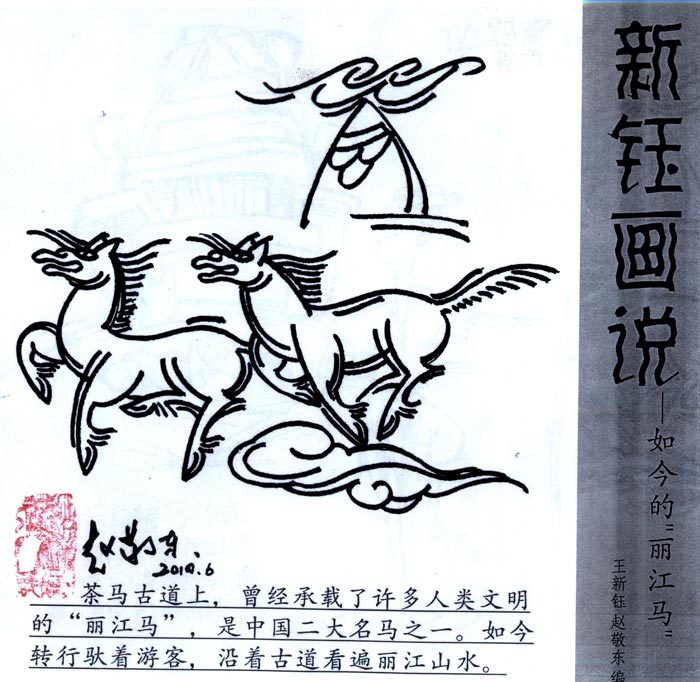 新钰画说
——如今的"丽江马"
王新钰 赵敬东 编
赵敬东
2010.6
茶马古道上，曾经承载了许多人类文明
的“丽江马”，是中国二大名马之一。如今
转行驮着游客，沿着古道看遍丽江山水。